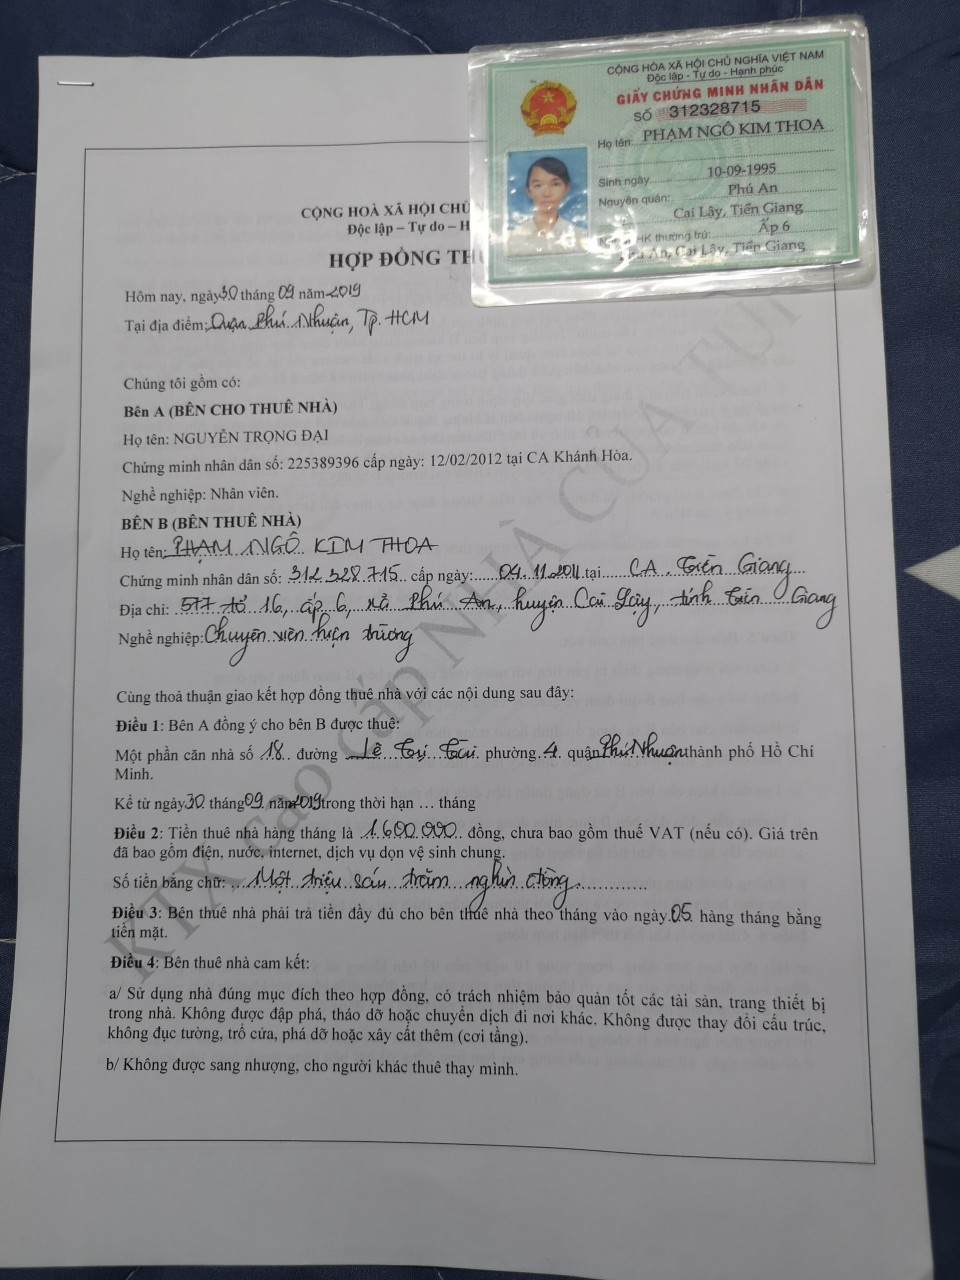 CỘNG HÒA XÃ HỘI CHỦ NGHĨA VIỆT NAM
Độc lập - Tự do - Hạnh phúc
GIẤY CHỨNG MINH NHÂN DÂN
SỐ 312328715
Họ tên: PHẠM NGÔ KIM THOA
Sinh ngày 10-09-1995
Nguyên quán: Phú An
Cai Lậy, Tiền Giang
HK thường trú: Ấp 6
Phú An, Cai Lậy, Tiền Giang
CỘNG HOÀ XÃ HỘI CHỦ
Độc lập – Tự do – H
HỢP ĐỒNG TH
Hôm nay, ngày 30 tháng 09 năm 2019
Tại địa điểm: Quận Phú Nhuận, Tp. HCM
Chúng tôi gồm có:
Bên A (BÊN CHO THUÊ NHÀ)
Họ tên: NGUYỄN TRỌNG ĐẠI
Chứng minh nhân dân số: 225389396 cấp ngày: 12/02/2012 tại CA Khánh Hòa.
Nghề nghiệp: Nhân viên.
BÊN B (BÊN THUÊ NHÀ)
Họ tên: PHẠM NGÔ KIM THOA
Chứng minh nhân dân số: 312 328 715 cấp ngày: 04.11.2011 tại CA. Tiền Giang
Địa chỉ: 577 tổ 16, ấp 6, xã Phú An, huyện Cai Lậy, tỉnh Tiền Giang
Nghề nghiệp: Chuyên viên hiện trường
Cùng thoả thuận giao kết hợp đồng thuê nhà với các nội dung sau đây:
Điều 1: Bên A đồng ý cho bên B được thuê:
Một phần căn nhà số 18 đường Lê Tự Tài phường 4 quận Phú Nhuận thành phố Hồ Chí
Minh.
Kể từ ngày 30 tháng 09 năm 2019 trong thời hạn … tháng
Điều 2: Tiền thuê nhà hàng tháng là 1.600.000 đồng, chưa bao gồm thuế VAT (nếu có). Giá trên
đã bao gồm điện, nước, internet, dịch vụ dọn vệ sinh chung.
Số tiền bằng chữ: Một triệu sáu trăm nghìn đồng.
Điều 3: Bên thuê nhà phải trả tiền đầy đủ cho bên thuê nhà theo tháng vào ngày 05 hàng tháng bằng
tiền mặt.
Điều 4: Bên thuê nhà cam kết:
a/ Sử dụng nhà đúng mục đích theo hợp đồng, có trách nhiệm bảo quản tốt các tài sản, trang thiết bị
trong nhà. Không được đập phá, tháo dỡ hoặc chuyển dịch đi nơi khác. Không được thay đổi cấu trúc,
không đục tường, trổ cửa, phá dỡ hoặc xây cất thêm (cơi tầng).
b/ Không được sang nhượng, cho người khác thuê thay mình.
KTX Cao Cấp NHÀ CỦA TUI